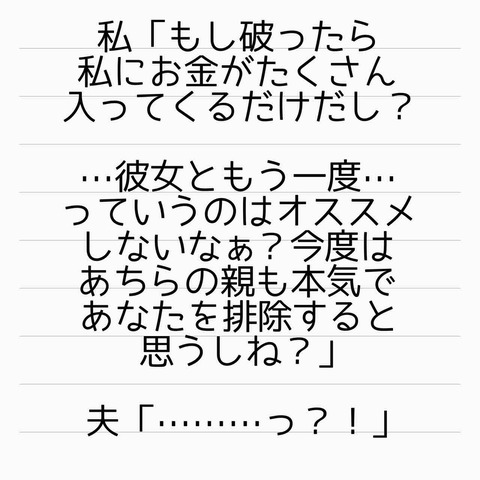 私「もし破ったら
私にお金がたくさん
入ってくるだけだし？
…彼女ともう一度…
っていうのはオススメ
しないなぁ？今度は
あちらの親も本気で
あなたを排除すると
思うしね？」
夫「………っ？！」